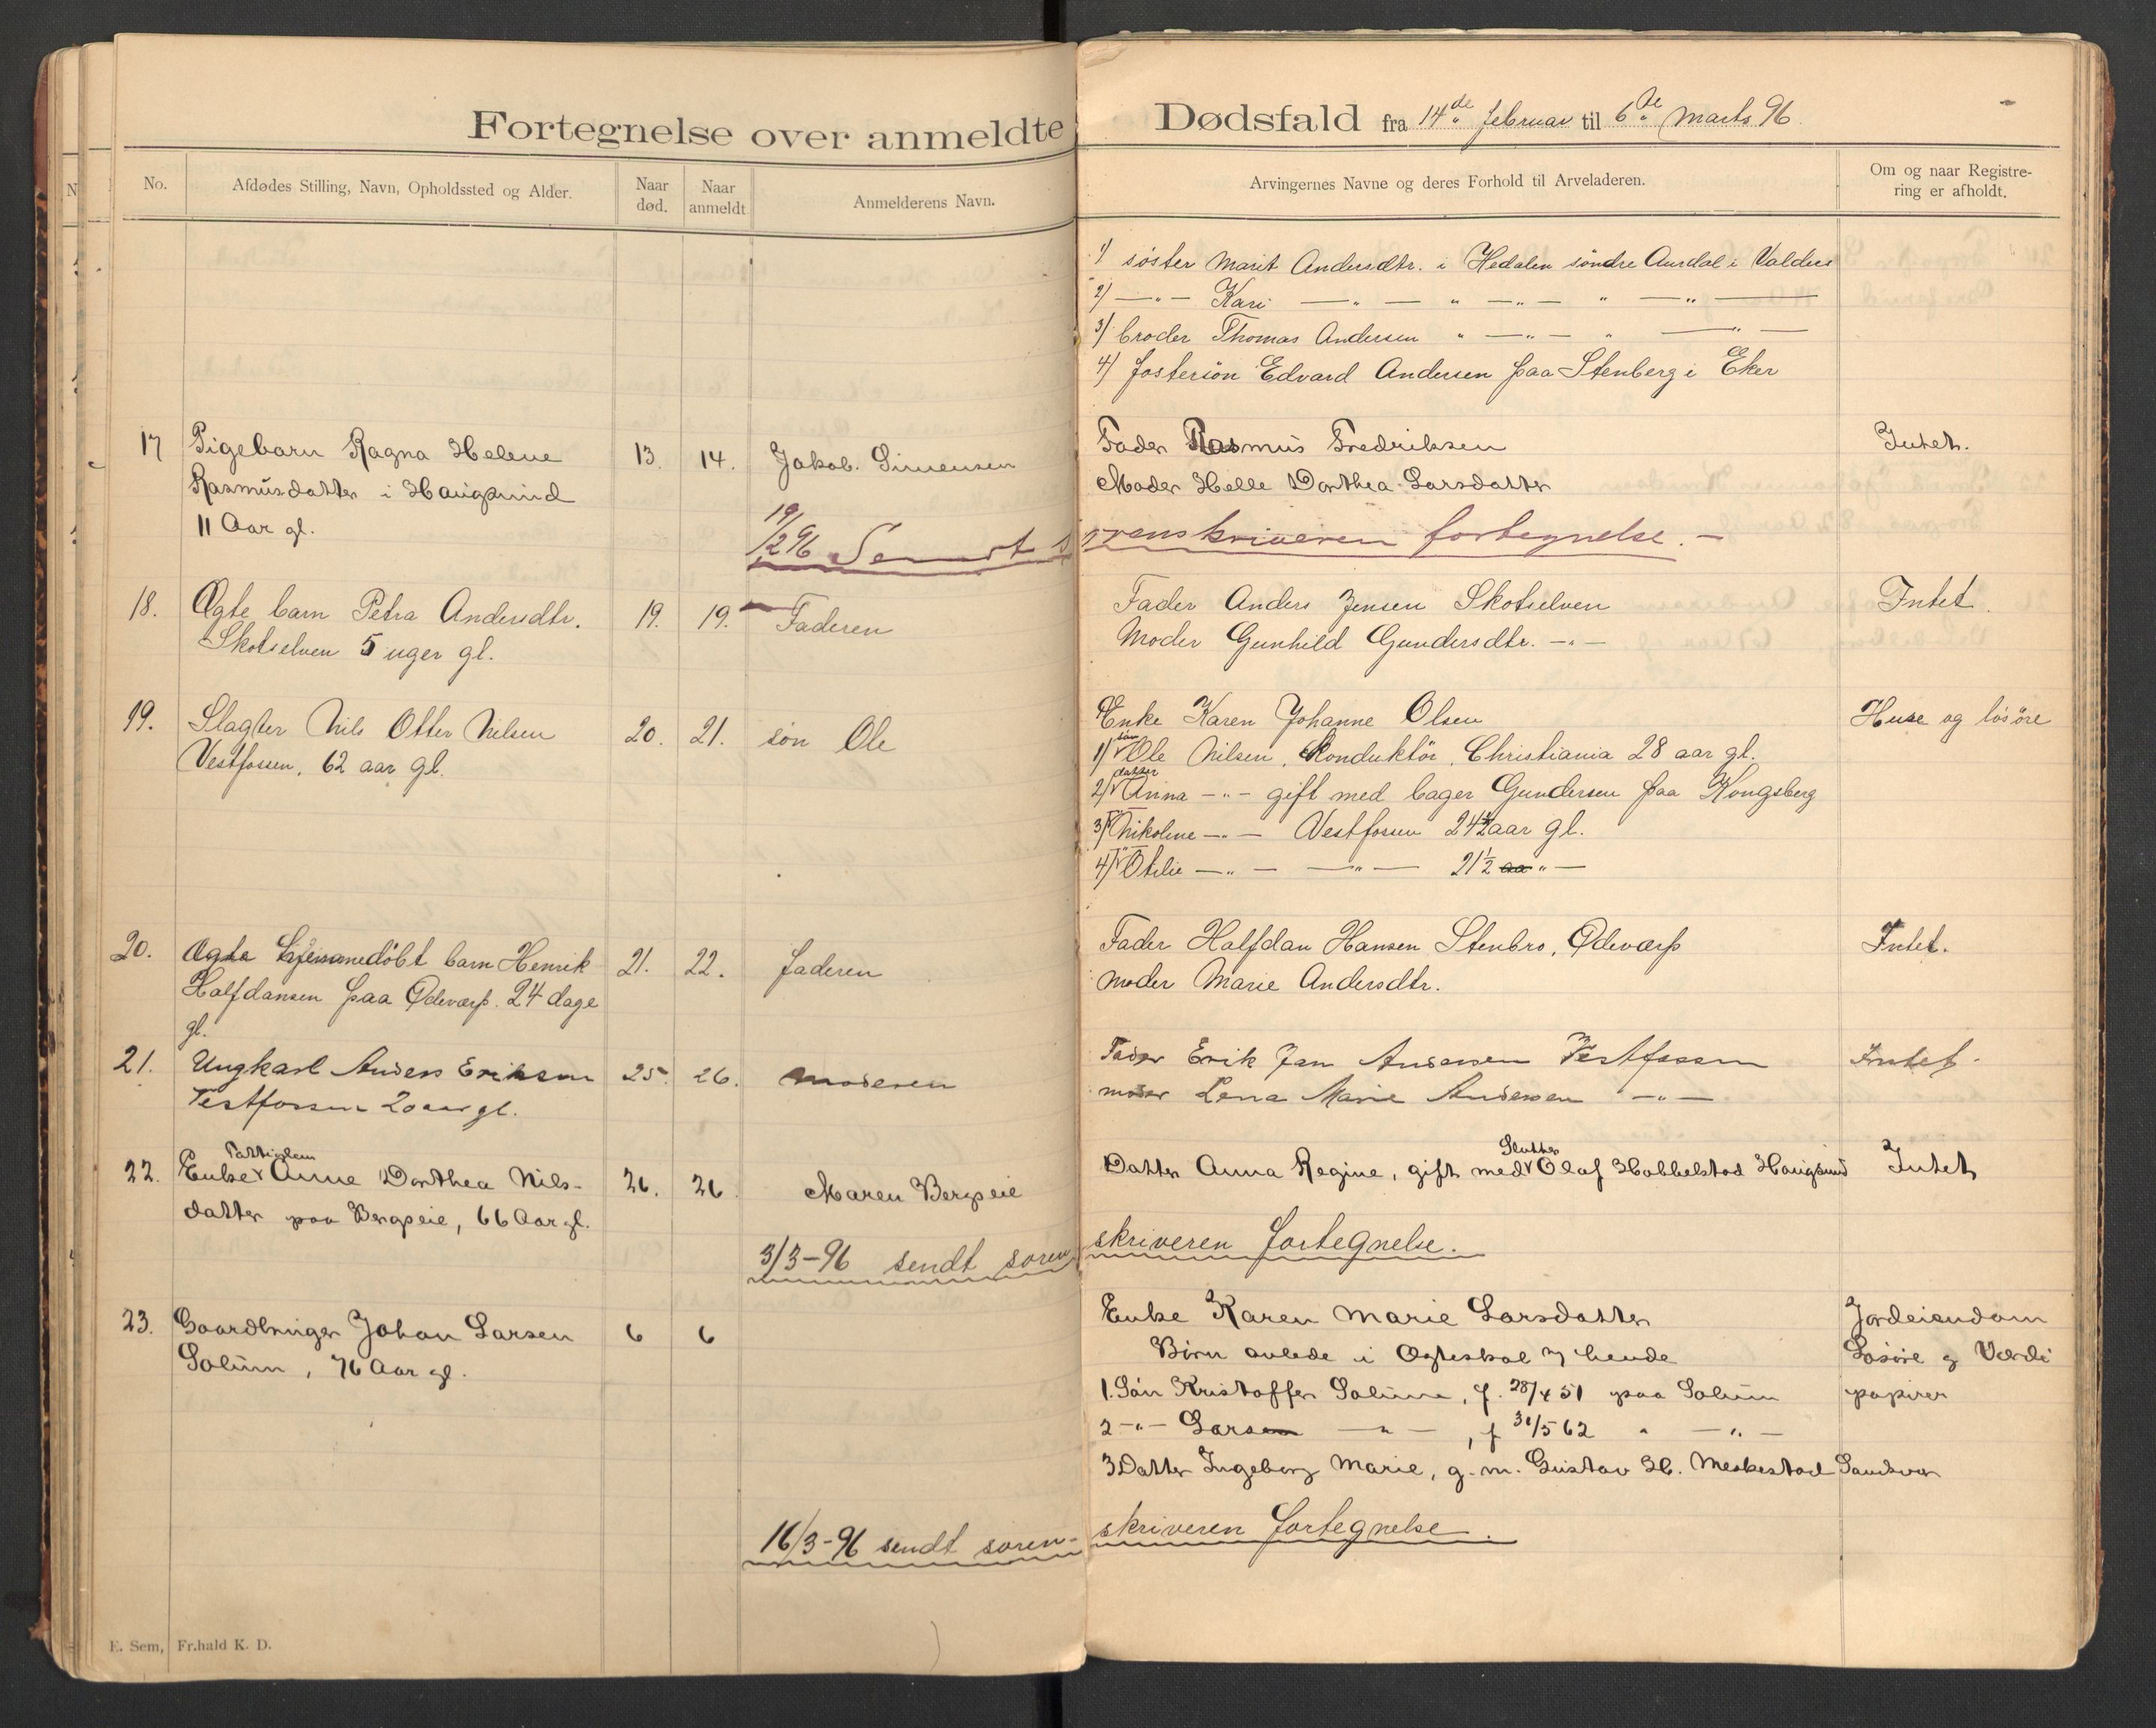 Fortegnelse over anmeldte Dødsfald fra 14de februar til 6de Marts 96.
No.
Afdødes Stilling, Navn, Opholdssted og Alder.
Naar død.
Naar anmeldt.
Anmelderens Navn.
Arvingernes Navne og deres Forhold til Arveladeren.
Om og naar Registrering er afholdt.
1) søster Marit Andersdtr. i Hedalen søndre Aurdal i Valders
2) —„— Kari —„— „ —„— „ —„—
3) broder Thomas Andersen „ —„— „ —„—
4) fostersøn Edvard Andersen paa Stenberg i Eker
17 Pigebarn Ragna Helene 13. 14. Jakob Simensen Fader Rasmus Fredriksen Intet.
Rasmusdatter i Haugsund Moder Helle Dorthea Larsdatter
11 Aar gl.
19/2 96 Sendt sorenskriveren fortegnelse. —
18. Ægte barn Petra Andersdtr. 19. 19. Faderen Fader Anders Jensen Skotselven Intet.
Skotselven 5 uger gl. Moder Gunhild Gundersdtr. —„—
19. Slagter Nils Otter Nilsen 20. 21. søn Ole Enke Karen Johanne Olsen Huse og løsøre
Vestfossen, 62 aar gl. 1) søn Ole Nilsen, Konduktør, Christiania 28 aar gl.
2) datter Anna —„— gift med bager Gundersen paa Kongsberg
3) „ Nikoline —„— Vestfossen 24½ aar gl.
4) „ Otilie —„— —„— 21½ aa „ —
20. Ægte hjemmedøbt barn Henrik 21. 22. faderen Fader Halfdan Hansen Stenbro, Ødeværp Intet.
Halfdansen paa Ødeværp. 24 dage moder Marie Andersdtr.
gl.
21. Ungkarl Anders Eriksen 25. 26. moderen Fader Erik Jan Andersen Vestfossen Intet.
Vestfossen 20 aar gl. moder Lena Marie Andersen —„—
22. Enke Fattiglem Anne Dorthea Nils- 26. 26 Maren Bergseie Datter Anna Regine, gift med Slutter Olaf Hobbelstad Haugsund Intet
datter paa Bergseie, 66 Aar gl.
3/3-96 sendt sorenskriveren fortegnelse.
23. Gaardbruger Johan Larsen 6 6 Enke Karen Marie Larsdatter Jordeiendom
Solum, 76 Aar gl. Børn avlede i Ægteskab m hende Løsøre og Værdi
1. Søn Kristoffer Solum, f. 28/4 51 paa Solum papirer
2 —„— Larsen —„—, f 30/5 62 „ —„—
3 Datter Ingeborg Marie, g. m. Gustav H. Meskestad Sandsvær
16/3-96 sendt sorenskriveren fortegnelse.
E. Sem, Fr.hald K. D.